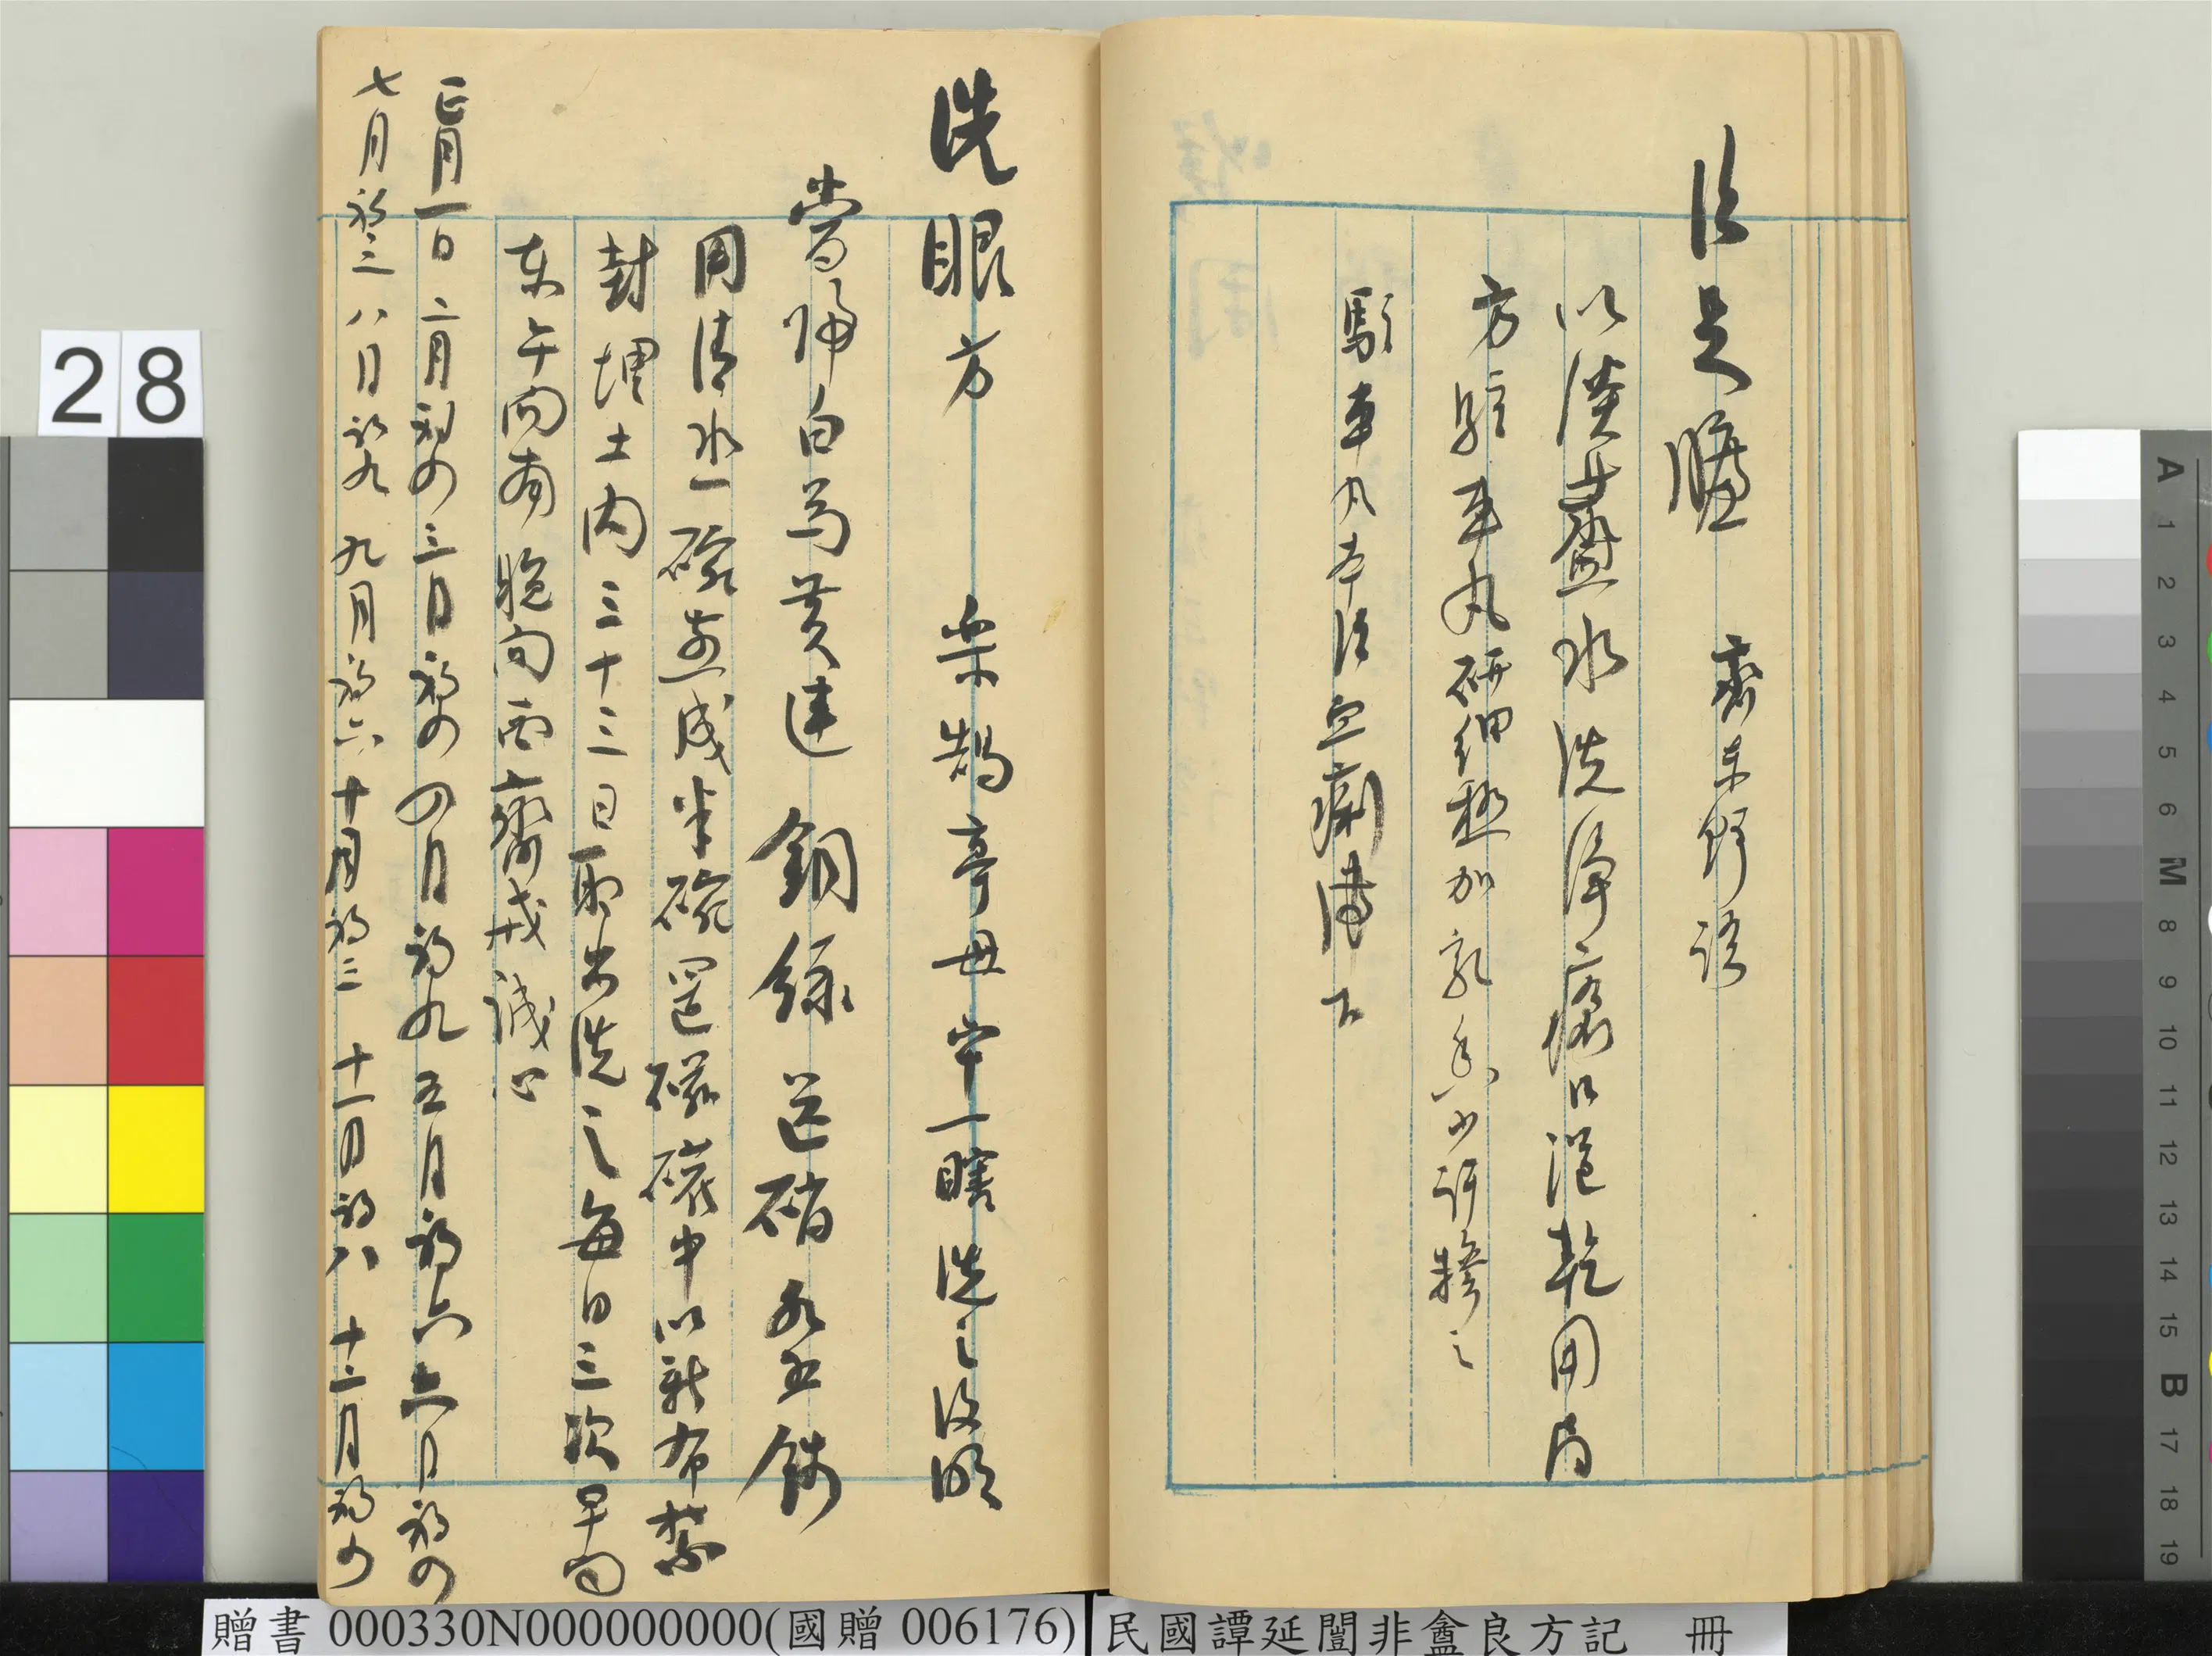 治足臁 齊東野語
以淡虀水洗淨瘡口浥乾用局
方駐車丸研細極加乳香少許摻之
駐車丸本治血痢滯下
洗眼方 栗鵠亭母辛一瞎洗之復明
當歸白芍黃連 銅綠 芒硝 各五錢
用清水一碗煎成半碗置磁礶中以新布紮
封埋土內三十三日取出洗之每日三次早向
東午向南晚向西齋戒誠心
正月一日 二月初四 三月初四 四月初九 五月初六 六月初四
七月初三 八月初九 九月初六 十月初三 十一月初八 十二月初四
28
A 1 2 3 4 5 6 M 8 9 10 11 12 13 14 15 B 17 18 19
贈書 000330N000000000(國贈 006176) 民國譚延闓非盦良方記 冊